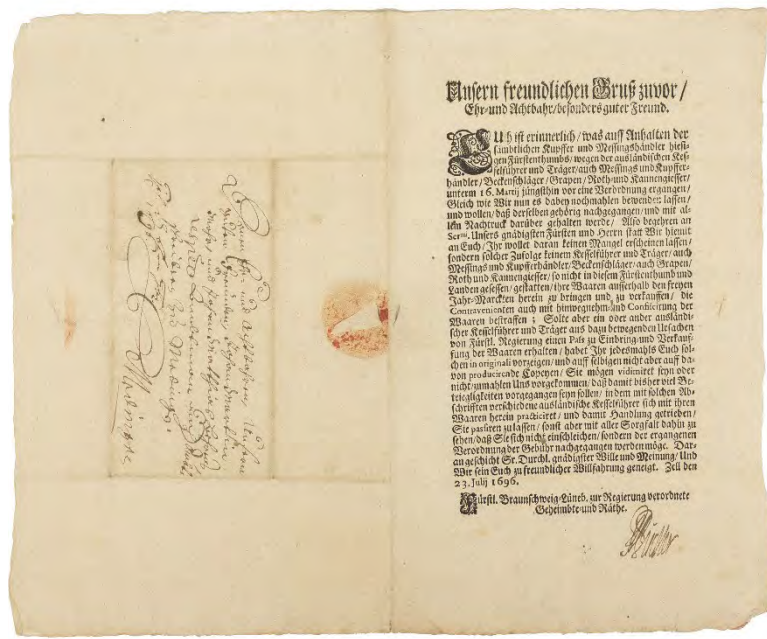 Unsern freundlichen Gruß zuvor /
Ehr- und Achtbahr / besonders guter Freund.
EUh ist erinnerlich / was auff Anhalten der
sämbtlichen Kupffer und Messingshändler hiesi-
gen Fürstenthumbs / wegen der ausländischen Kes-
selführer und Träger / auch Messings und Kupffer-
händler / Beckenschläger / Grapen / Roth- und Kannengiesser /
unterm 16. Martij jüngsthin vor eine Verordnung ergangen /
Gleich wie Wir nun es dabey nochmahlen bewenden lassen /
und wollen / daß derselben gehörig nachgegangen / und mit al-
lem Nachtruck darüber gehalten werde / Also begehren an
Serᵐⁱ. Unsers gnädigsten Fürsten und Herrn statt Wir hiemit
an Euch / Ihr wollet daran keinen Mangel erscheinen lassen /
sondern solcher Zufolge keinem Kesselführer und Träger / auch
Messings und Kupfferhändler / Beckenschläger / auch Grapen /
Roth und Kannengiesser / so nicht in diesem Fürstenthumb und
Landen gesessen / gestatten / ihre Waaren ausserhalb den freyen
Jahr-Marckten herein zu bringen und zu verkauffen / die
Contravenienten auch mit hinwegnehm- und Confiscirung der
Waaren bestraffen ; Solte aber ein oder ander ausländi-
scher Kesselführer und Träger aus dazu bewegenden Ursachen
von Fürstl. Regierung einen Paß zu Einbring- und Verkauf-
fung der Waaren erhalten / habet Ihr jedesmahls Euch sol-
chen in originali vorzeigen / und auff selbigen nicht aber auff da-
von producirende Copeyen / Sie mögen vidimiret seyn oder
nicht / zumahlen Uns vorgekommen / daß damit bisher viel Be-
triegligkeiten vorgegangen seyn sollen / in dem mit solchen Ab-
schrifften verschiedene ausländische Kesselführer sich mit ihren
Waaren herein practiciret / und damit Handlung getrieben /
Sie passiren zu lassen / sonst aber mit aller Sorgfalt dahin zu
sehen / daß Sie sich nicht einschleichen / sondern der ergangenen
Verordnung der Gebühr nachgegangen werden möge. Dar-
an geschicht Sr. Durchl. gnädigster Wille und Meinung / Und
Wir sein Euch zu freundlicher Willfahrung geneigt. Zell den
23. Julij 1696.
Fürstl. Braunschweig-Lüneb. zur Regierung verordnete
Geheimbte- und Räthe.